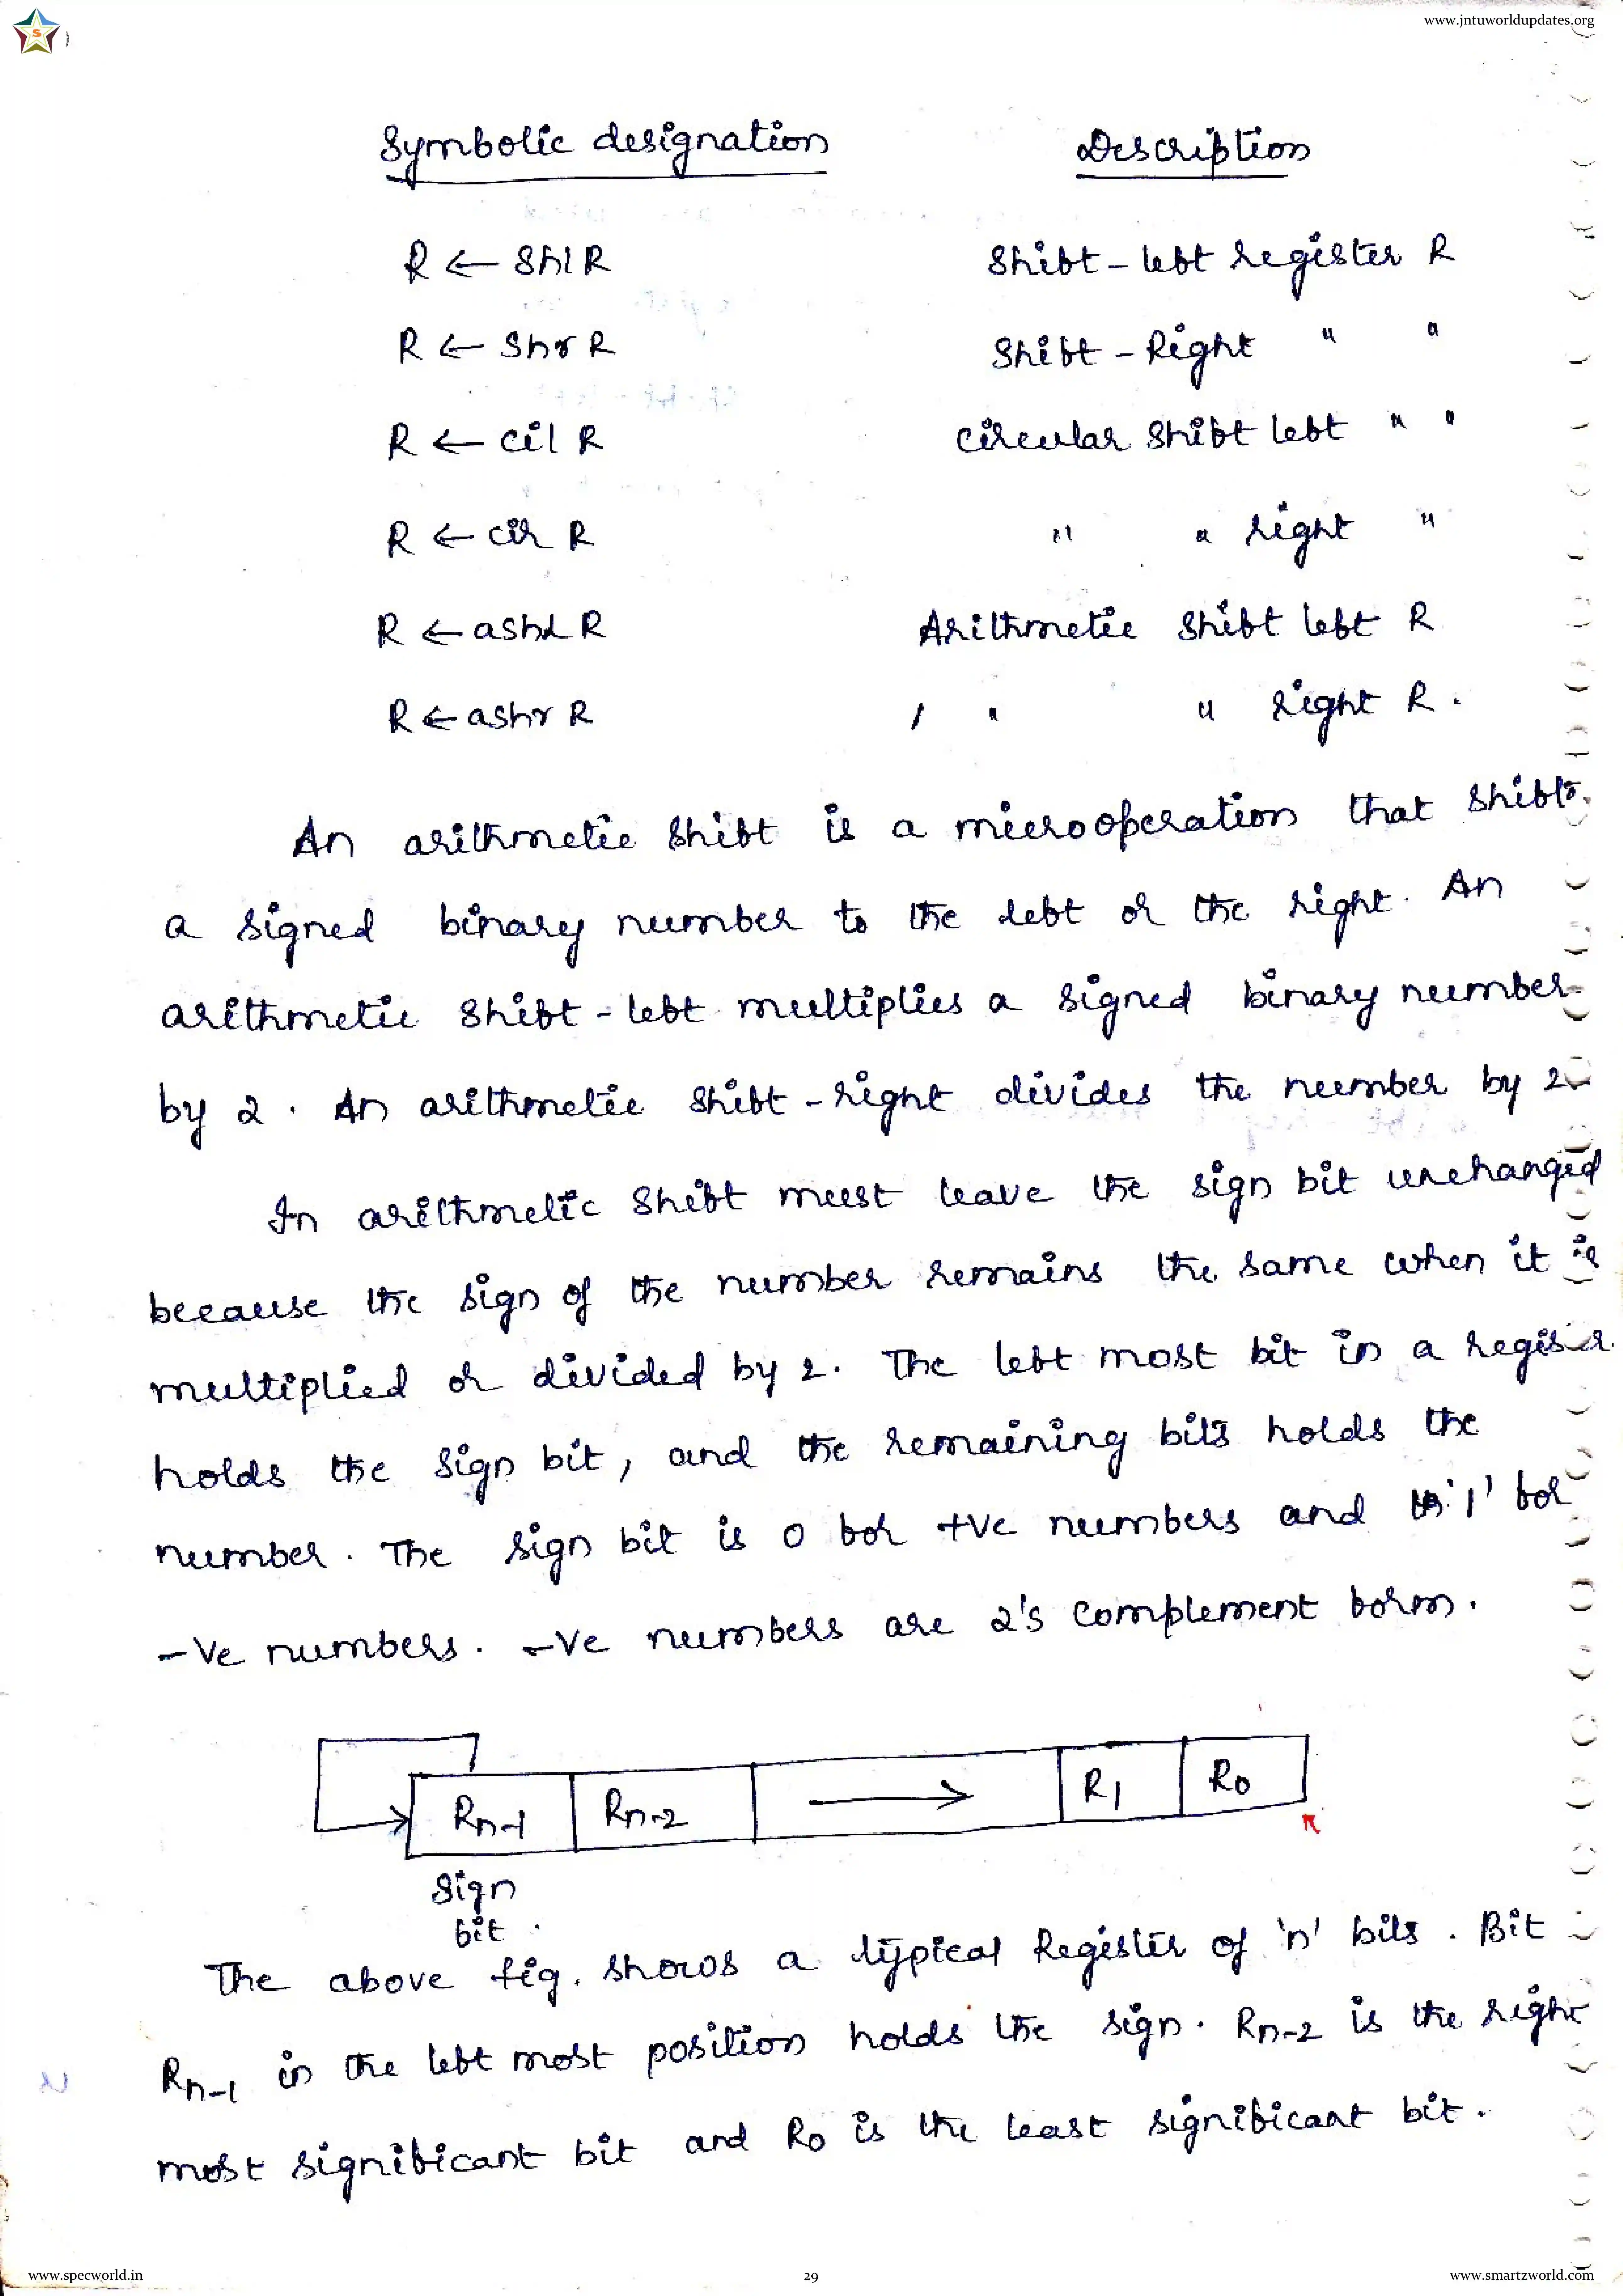 www.jntuworldupdates.org
S
Symbolic designation Description
R ← shl R Shift-left register R
R ← shr R Shift-Right " "
R ← cil R circular shift left " "
R ← cir R " " right "
R ← ashl R Arithmetic shift left R
R ← ashr R " " right R.
An arithmetic shift is a microoperation that shifts
a signed binary number to the left or the right. An
arithmetic shift-left multiplies a signed binary number
by 2. An arithmetic shift-right divides the number by 2
In arithmetic shift must leave the sign bit unchanged
because the sign of the number remains the same when it is
multiplied or divided by 2. The left most bit in a register
holds the sign bit, and the remaining bits holds the
number. The sign bit is 0 for +ve numbers and '1' for
-ve numbers. -ve numbers are 2's complement form.
Rn-1 Rn-2 → R1 R0
Sign
bit.
The above fig. shows a typical Register of 'n' bits. Bit
Rn-1 in the left most position holds the sign. Rn-2 is the right
most significant bit and R0 is the least significant bit.
www.specworld.in 29 www.smartzworld.com